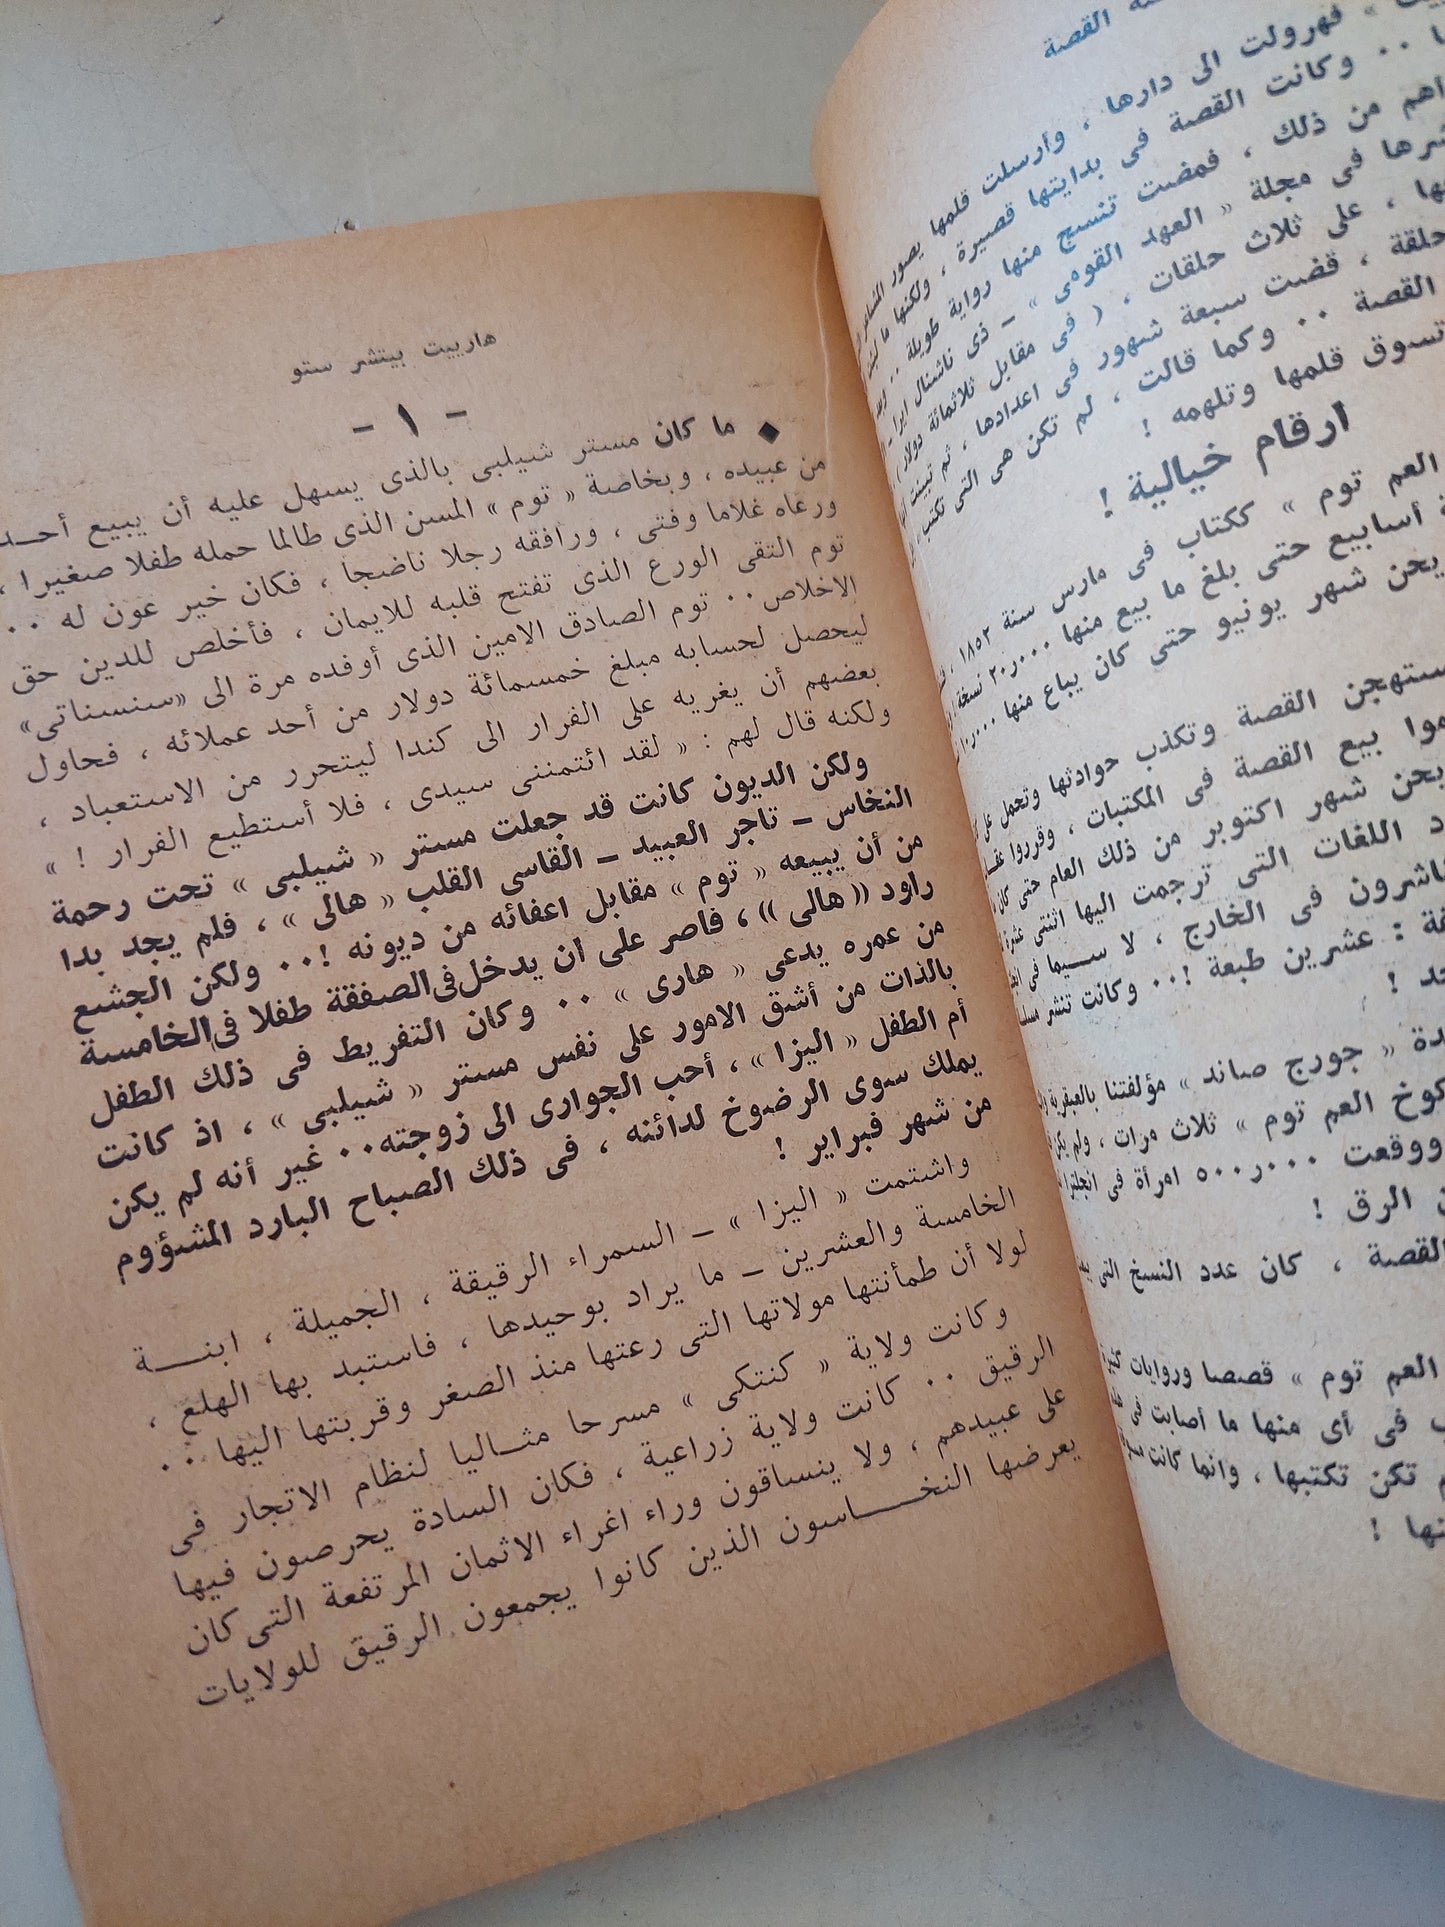 القصة
فهرولت الى دارها ، وأرسلت قلمها يصور
٠٠ وكانت القصة فى بدايتها قصيرة ، ولكنها ما
من ذلك ، فمضت تنسج منها رواية طويلة ٠٠
فى مجلة « العهد القومى » ــ ذى ناشنال ايرا ــ
، على ثلاث حلقات ، ( فى مقابل ثلاثمائة دولار )
حلقة ، قضت سبعة شهور فى اعدادها ، ثم تبينت
القصة ٠٠ وكما قالت ، لم تكن هى التى تكتب ،
تسوق قلمها وتلهمه !
ارقام خيالية !
العم توم » ككتاب فى مارس سنة ١٨٥٢ ،
أسابيع حتى بلغ ما بيع منها ٢٠٫٠٠٠ نسخة
يحن شهر يونيو حتى كان يباع منها
القصة وتكذب حوادثها وتحمل على
بيع القصة فى المكتبات ، وقرروا
يحن شهر اكتوبر من ذلك العام حتى كان
اللغات التى ترجمت اليها اثنتى عشرة
فى الخارج ، لا سيما فى
: عشرين طبعة !٠٠ وكانت تنشر
!
« جورج صاند » مؤلفتنا بالعبقرية
كوخ العم توم » ثلاث مرات ، ولم يكن
ووقعت ٥٠٠٫٠٠٠ امرأة فى انجلترا
الرق !
القصة ، كان عدد النسخ التى
العم توم » قصصا وروايات كثيرة
فى أى منها ما أصابت فى
تكن تكتبها ، وانما كانت
!
هارييت بيتشر ستو
ــ ١ ــ
◆ ما كان مستر شيلبى بالذى يسهل عليه أن يبيع أحد
من عبيده ، وبخاصة « توم » المسن الذى طالما حمله طفلا صغيرا ،
ورعاه غلاما وفتى ، ورافقه رجلا ناضجا ، فكان خير عون له ٠٠
توم التقى الورع الذى تفتح قلبه للايمان ، فأخلص للدين حق
الاخلاص٠٠ توم الصادق الامين الذى أوفده مرة الى «سنسناتى»
ليحصل لحسابه مبلغ خمسمائة دولار من أحد عملائه ، فحاول
بعضهم أن يغريه على الفرار الى كندا ليتحرر من الاستعباد ،
ولكنه قال لهم : « لقد ائتمننى سيدى ، فلا أستطيع الفرار ! »
ولكن الديون كانت قد جعلت مستر « شيلبى » تحت رحمة
النخاس ــ تاجر العبيد ــ القاسى القلب « هالى » ، فلم يجد بدا
من أن يبيعه « توم » مقابل اعفائه من ديونه !٠٠ ولكن الجشع
راود (( هالى )) ، فاصر على ان يدخل فى الصفقة طفلا فى الخامسة
من عمره يدعى « هارى » ٠٠ وكان التفريط فى ذلك الطفل
بالذات من أشق الامور على نفس مستر « شيلبى » ، اذ كانت
أم الطفل « اليزا » ، أحب الجوارى الى زوجته٠٠ غير أنه لم يكن
يملك سوى الرضوخ لدائنه ، فى ذلك الصباح البارد المشؤوم
من شهر فبراير !
واشتمت « اليزا » ــ السمراء الرقيقة ، الجميلة ، ابنــة
الخامسة والعشرين ــ ما يراد بوحيدها ، فاستبد بها الهلع ،
لولا أن طمأنتها مولاتها التى رعتها منذ الصغر وقربتها اليها ٠٠
وكانت ولاية « كنتكى » مسرحا مثــاليا لنظام الاتجار فى
الرقيق ٠٠ كانت ولاية زراعية ، فكان السادة يحرصون فيها
على عبيدهم ، ولا ينساقون وراء اغراء الاثمان المرتفعة التى كان
يعرضها النخــاسون الذين كانوا يجمعون الرقيق للولايات